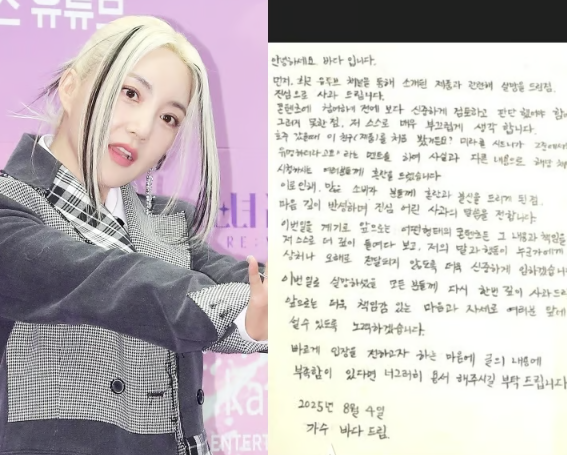 스 유튜브
RE:
ENTER
안녕하세요 바다 입니다.
먼저, 최근 유튜브 채널을 통해 소개된 제품과 관련해 실망을 드린점,
진심으로 사과 드립니다.
콘텐츠에 참여하기 전에 보다 신중하게 검토하고 판단 했어야 함에
그러지 못한 점, 저 스스로 매우 부끄럽게 생각 합니다.
호주 갔을때에 이 친구(제품)을 처음 봤거든요? 미라클 시드니가
유명하더라고요~ 라는 멘트를 하여 사실과 다른 내용으로 해당
시청하시는 여러분들께 혼란을 드렸습니다
이로인해, 많은 소비자 분들께 혼란과 불신을 드리게 된점,
마음 깊이 반성하며 진심 어린 사과의 말씀을 전합니다.
이번일을 계기로 앞으로는 어떤형태의 콘텐츠든 그 내용과 책임을
저 스스로 더 깊이 들여다 보고, 저의 말과 행동이 누군가에게
상처나 오해로 전달되지 않도록 더욱 신중하게 임하겠습니다
이번일로 실망하셨을 모든 분들께 다시 한번 깊이 사과드리
앞으로는 더욱 책임감 있는 마음과 자세로 여러분 앞에
설수 있도록 노력하겠습니다.
바르게 입장을 전하고자 하는 마음에 글의 내용에
부족함이 있다면 너그러히 용서 해주시길 부탁 드립니다
2025년 8월 4일
가수 바다 드림.